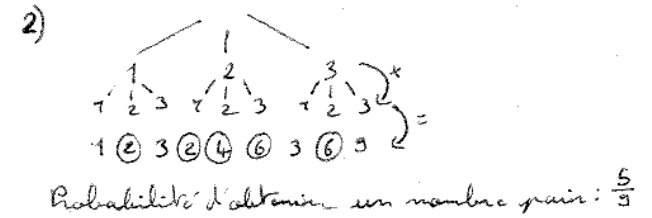 2)
1 2 3 ×
1 2 3 1 2 3 1 2 3 =
1 2 3 2 4 6 3 6 9
Probabilité d'obtenir un nombre pair : 5/9